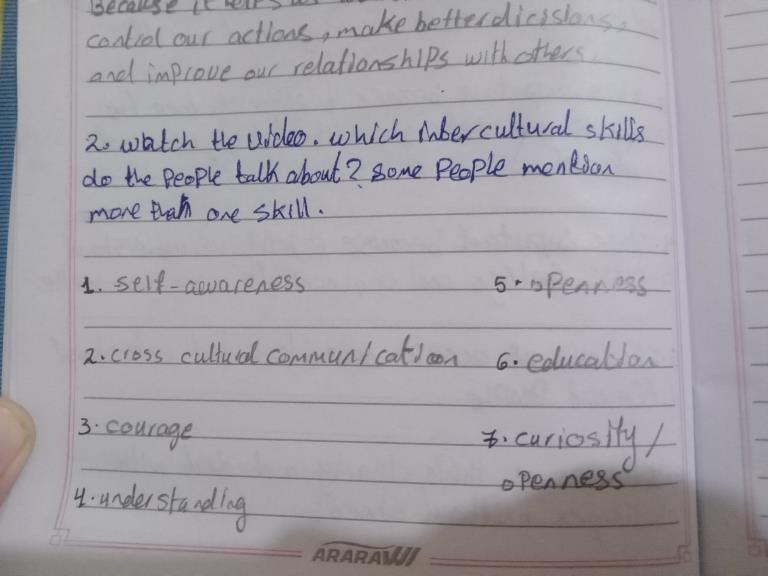 Because it helps us
control our actions, make better dicisions,
and improve our relationships with others
2. watch the video. which intercultural skills
do the people talk about? some people mention
more than one skill.
1. self-awareness
5. openness
2. cross cultural communication
6. education
3. courage
7. curiosity/
openness
4. understanding
ARARAWI